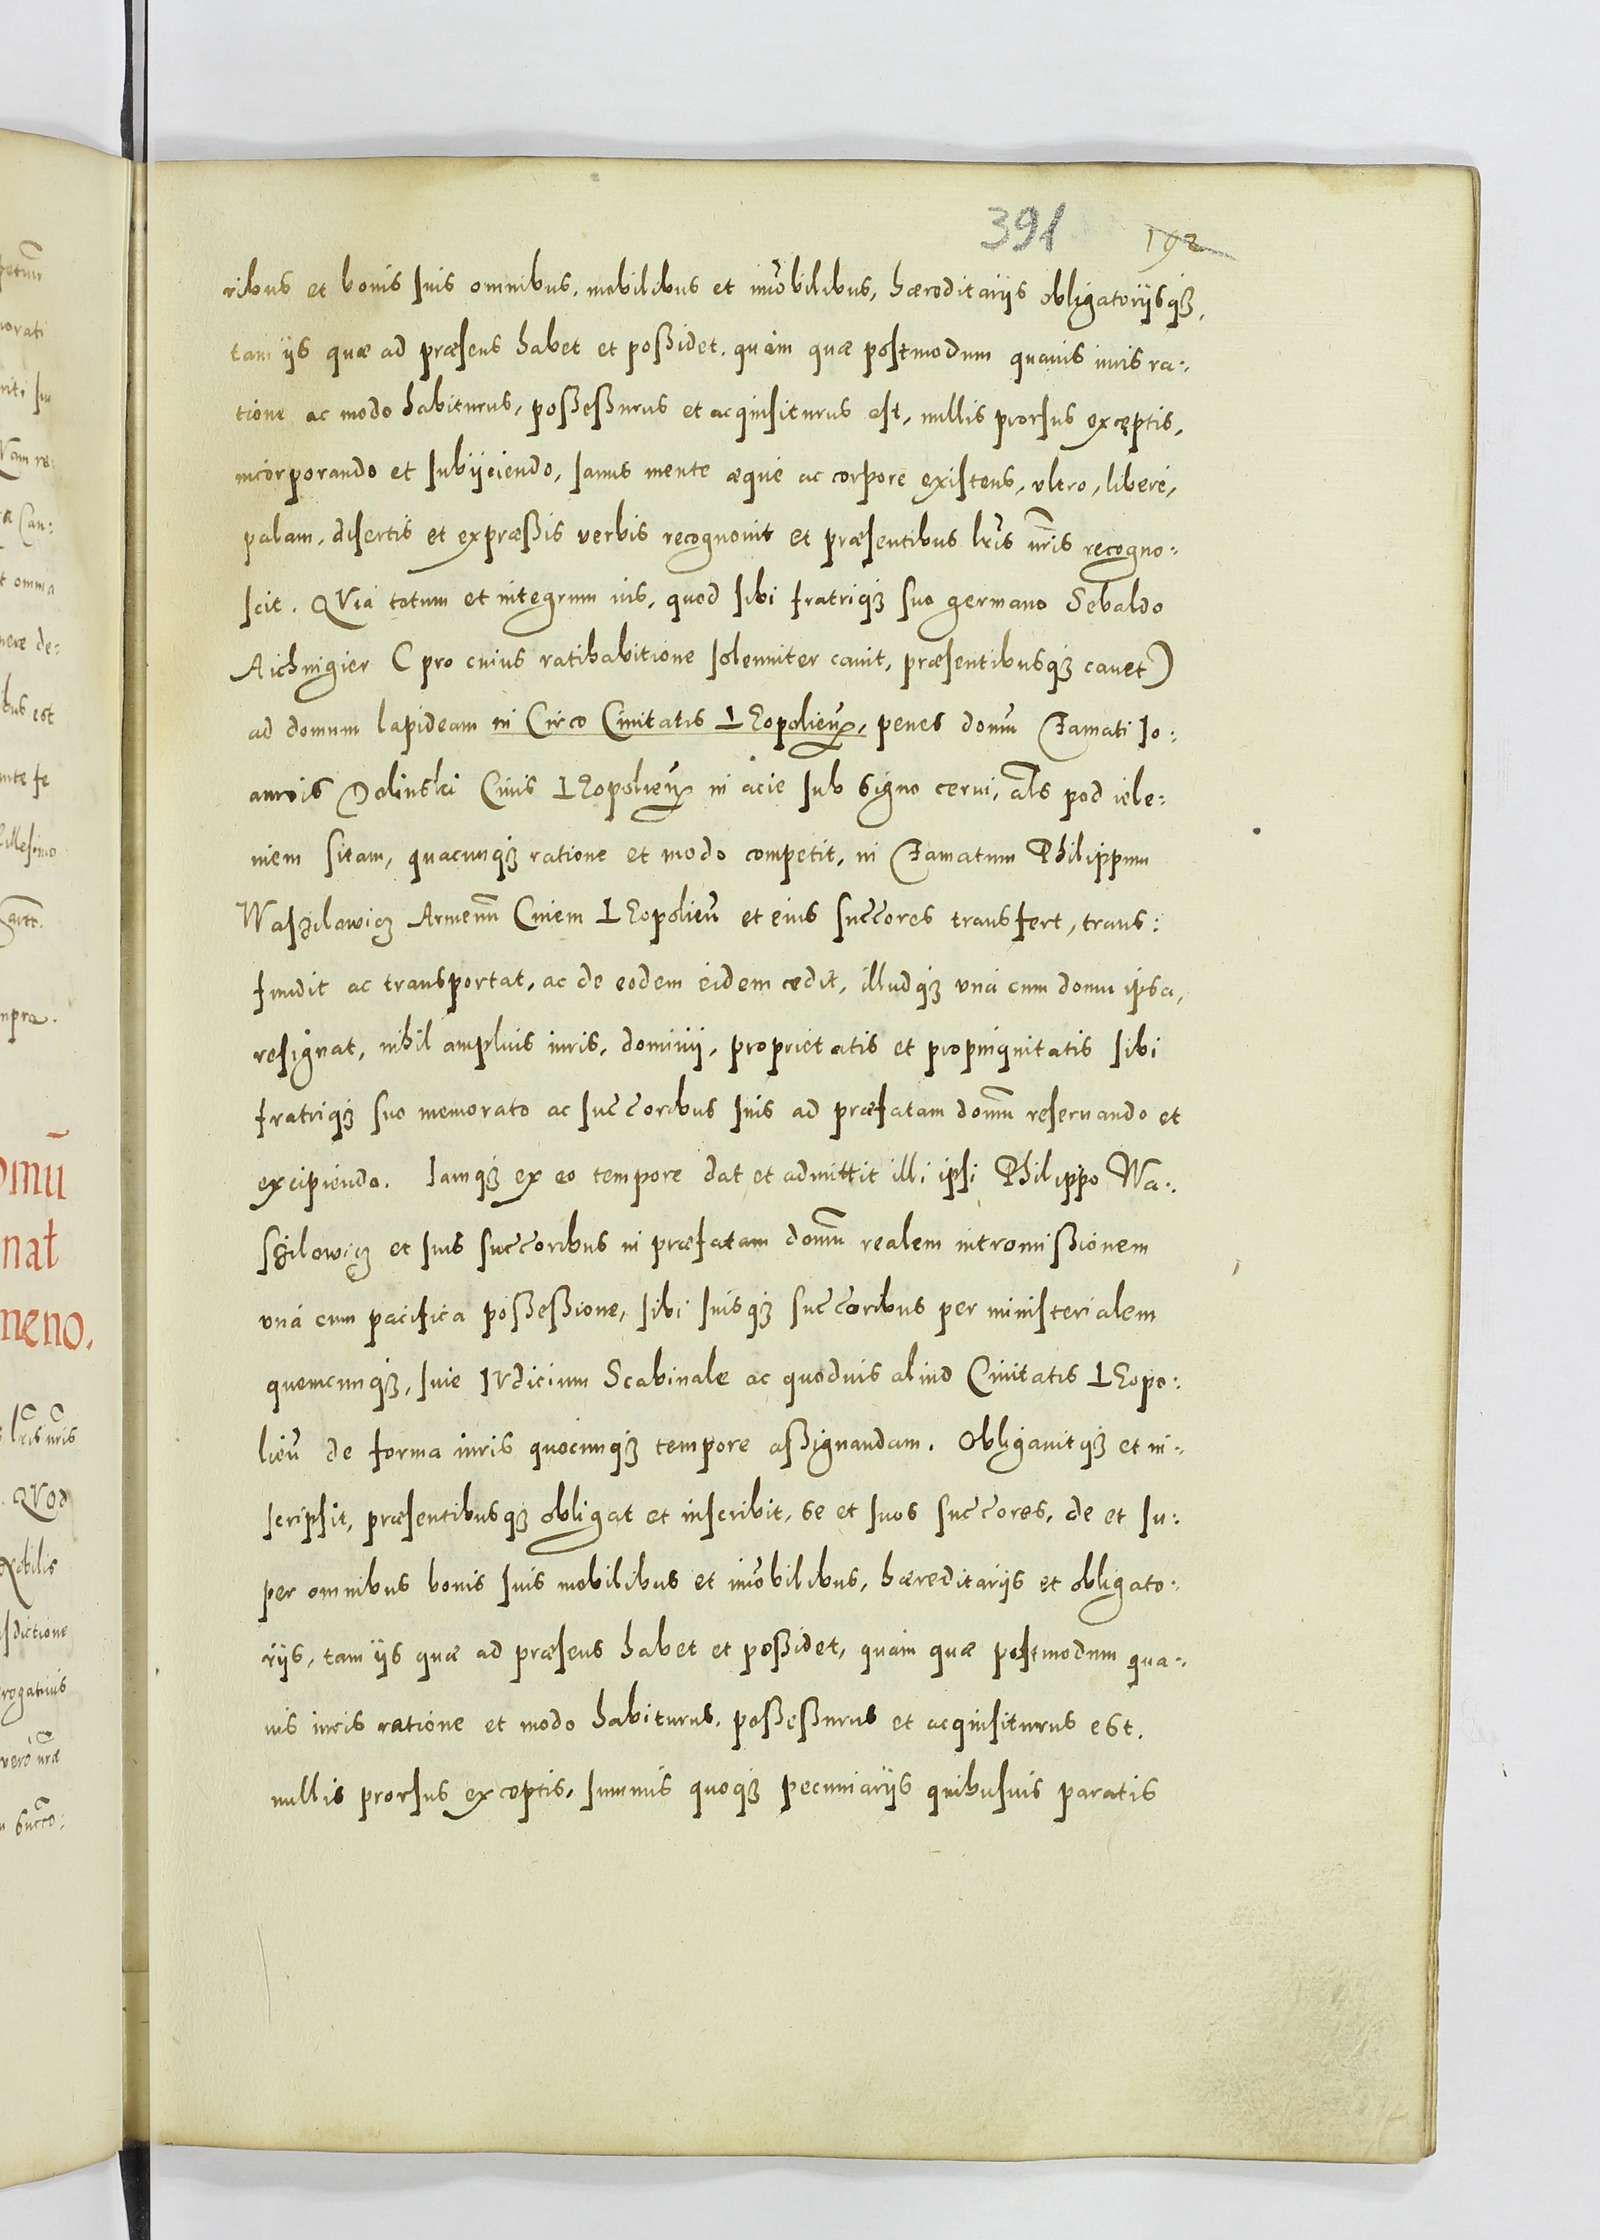 391 192
ribus et bonis suis omnibus, mobilibus et imobilibus, hæreditarijs obligatorijsq3,
tam ijs quæ ad præsens habet et poßidet, quàm quæ postmodum quauis iuris ra:
tione ac modo habiturus, poßeßurus et acquisiturus est, nullis prorsus exceptis,
incorporando et subijciendo, sanus mente æquè ac corpore existens, vltro, liberè,
palam, disertis et expræßis verbis recognouit et præsentibus lr̃is nr̃is recogno:
scit. QVia totum et integrum ius, quod sibi fratriq3 suo germano Sebaldo
Aichnigier (pro cuius ratihabitione solenniter cauit, præsentibusq3 cauet)
ad domum lapideam in Circo Ciuitatis Leopolien̄, penes domū Famati Jo:
annis Dolinski Ciuis Leopolien̄ in acie sub signo cerui, al̃s pod iele:
niem sitam, quacunq3 ratione et modo competit, in Famatum Philippum
Waszilowicz Armenū Ciuem Leopolien̄ et eius succ̃ores transfert, trans:
fundit ac transportat, ac de eodem eidem cedit, illudq3 vnà cum domu ipsa,
resignat, nihil ampluis iuris, dominij, proprietatis et propinquitatis sibi
fratriq3 suo memorato ac succ̃oribus suis ad præfatam domū reseruando et
excipiendo. Iamq3 ex eo tempore dat et admittit illi ipsi Philippo Wa:
szilowicz et suis succ̃oribus in præfatam domū realem intromißionem
vnà cum pacifica poßeßione, sibi suisq3 succ̃oribus per ministerialem
quemcunq3, siue IVdicium Scabinale ac quoduis aliud Ciuitatis Leopo:
lien̄ de forma iuris quocunq3 tempore aßignandam. Obligauitq3 et in:
scripsit, præsentibusq3 obligat et inscribit, se et suos succ̃ores, de et su:
per omnibus bonis suis mobilibus et imobilibus, hæreditarijs et obligato:
rijs, tam ijs quæ ad præsens habet et poßidet, quàm quæ postmodum qua:
uis iuris ratione et modo habiturus, poßeßurus et acquisiturus est.
nullis prorsus exceptis, summis quoq3 pecuniarijs quibusuis paratis